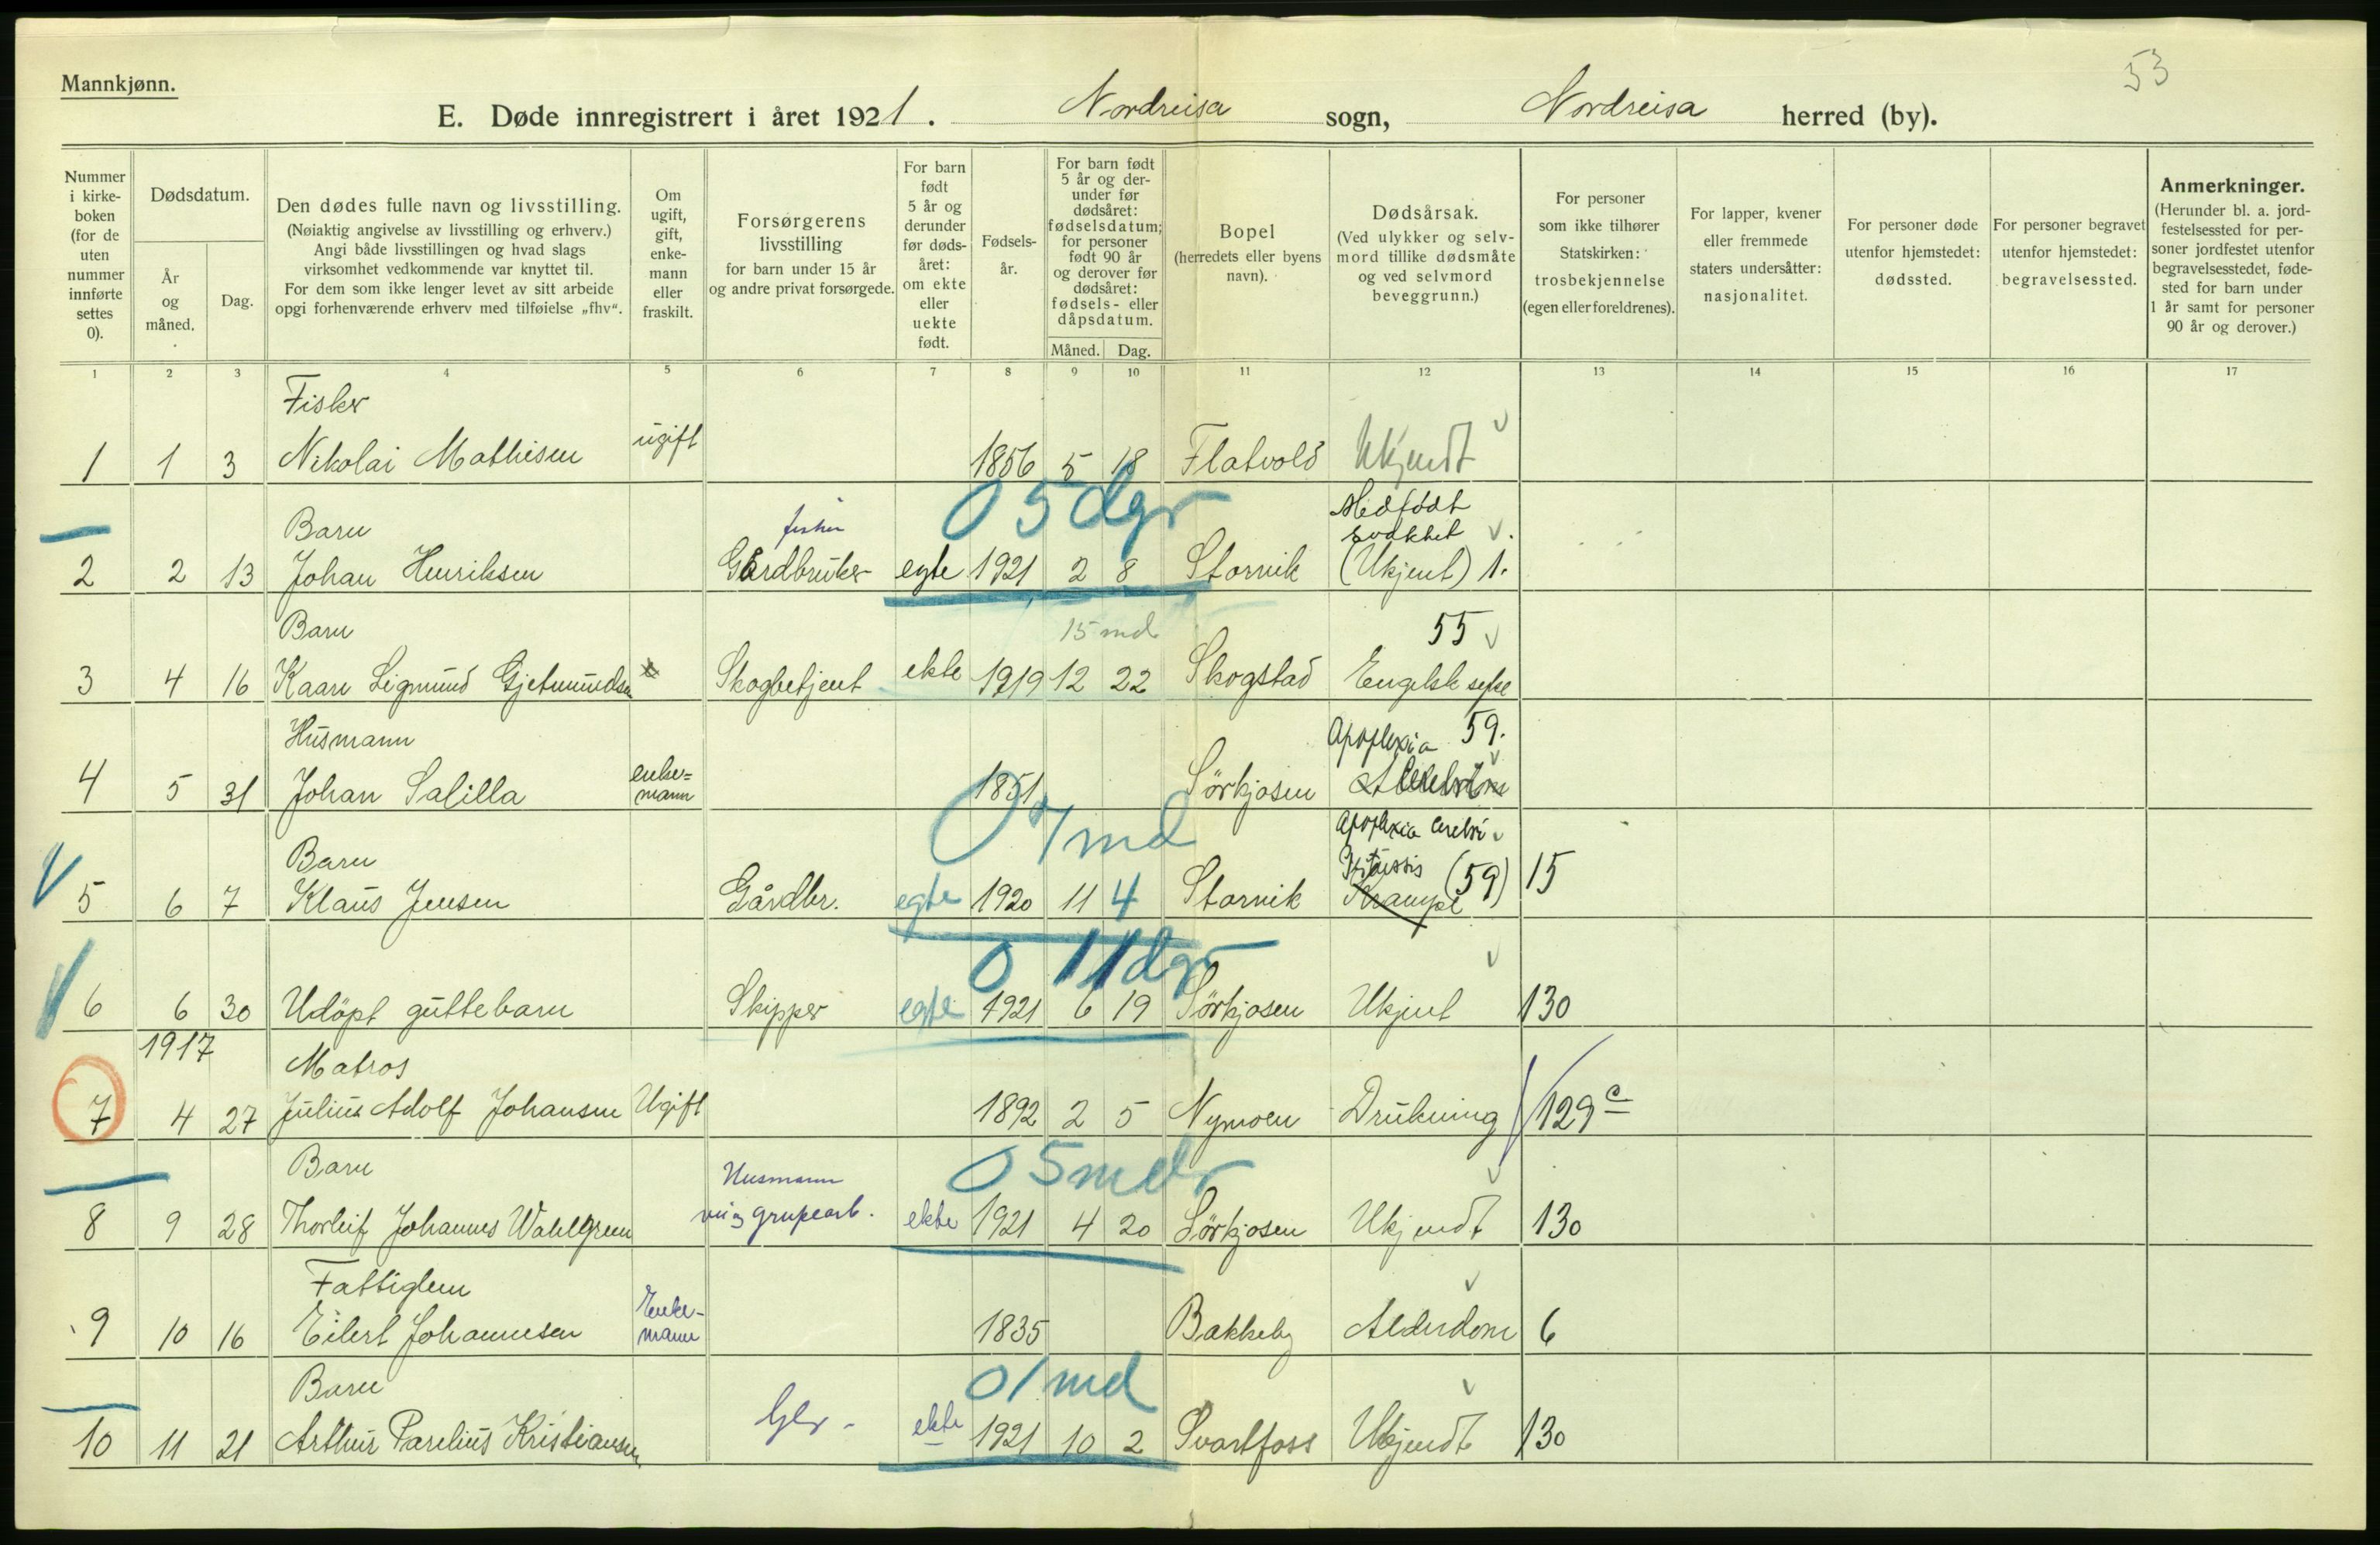 Mannkjønn.
53
E. Døde innregistrert i året 1921. Nordreisa sogn, Nordreisa herred (by).
Nummer i kirke-boken (for de uten nummer innførte settes 0).
Dødsdatum.
År og måned.
Dag.
Den dødes fulle navn og livsstilling.
(Nøiaktig angivelse av livsstilling og erhverv.)
Angi både livsstillingen og hvad slags
virksomhet vedkommende var knyttet til.
For dem som ikke lenger levet av sitt arbeide
opgi forhenværende erhverv med tilføielse „fhv“.
Om ugift, gift, enke-mann eller fraskilt.
Forsørgerens livsstilling
for barn under 15 år
og andre privat forsørgede.
For barn født 5 år og derunder før døds-året: om ekte eller uekte født.
Fødsels-år.
For barn født 5 år og der-under før dødsåret: fødselsdatum; for personer født 90 år og derover før dødsåret: fødsels- eller dåpsdatum.
Måned. Dag.
Bopel
(herredets eller byens navn).
Dødsårsak.
(Ved ulykker og selv-mord tillike dødsmåte og ved selvmord beveggrunn.)
For personer som ikke tilhører Statskirken: trosbekjennelse (egen eller foreldrenes).
For lapper, kvener eller fremmede staters undersåtter: nasjonalitet.
For personer døde utenfor hjemstedet: dødssted.
For personer begravet utenfor hjemstedet: begravelsessted.
Anmerkninger.
(Herunder bl. a. jord-festelsessted for per-soner jordfestet utenfor begravelsesstedet, føde-sted for barn under 1 år samt for personer 90 år og derover.)
1 2 3 4 5 6 7 8 9 10 11 12 13 14 15 16 17
Fisker
1 1 3 Nikolai Mathisen ugift 1856 5 18 Flatvold Ukjendt
0 5 dgr
Barn fisker Medfødt svakhet
2 2 13 Johan Henriksen Gårdbruker egte 1921 2 8 Storvik (Ukjent) 1.
Barn 15 md 55
3 4 16 Kaare Sigmund Gjetmundsen Skogbetjent ekte 1919 12 22 Skogstad Engelsk syke
Husmann Apoplexia 59.
4 5 31 Johan Salilla enke=mann 1851 Sörkjosen
0 7 md
Barn Apoplexia cerebri
5 6 7 Klaus Jensen Gårdbr. egte 1920 11 4 Storvik Krampe (59) 15
0 11 dgr
6 6 30 Udöpt guttebarn Skipper egte 1921 6 19 Sörkjosen Ukjent 130
1917 Matros
7 4 27 Julius Adolf Johansen Ugift 1892 2 5 Nymoen Drukning 129 c
0 5 mdr
Barn Husmann
8 9 28 Thorleif Johannes Wahlgren og grubearb. ekte 1921 4 20 Sörkjosen Ukjendt 130
Fattiglem
9 10 16 Eilert Johannesen Enke-mann 1835 Bakkeby Alderdom 6
0 1 md
Barn
10 11 21 Arthur Parelius Kristiansen Gbr - ekte 1921 10 2 Svartfoss Ukjendt 130